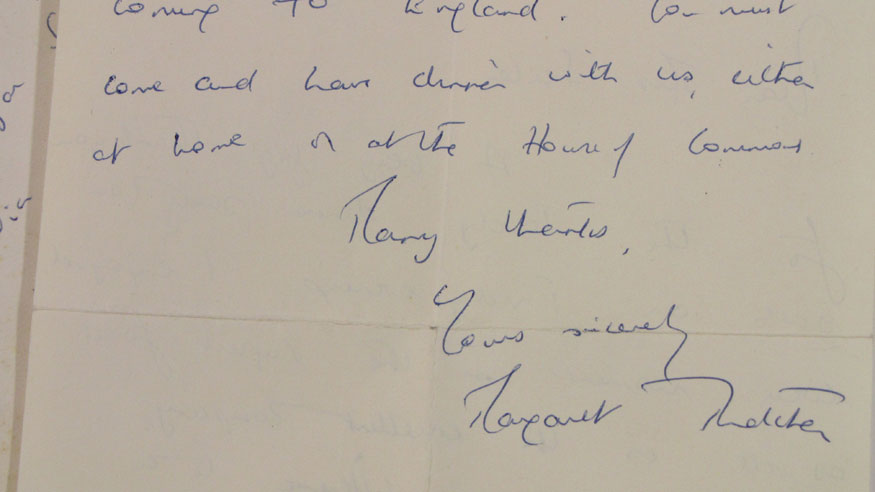 coming to England. You must
come and have dinner with us, either
at home or at the House of Commons
Many thanks,
Yours sincerely
Margaret Thatcher